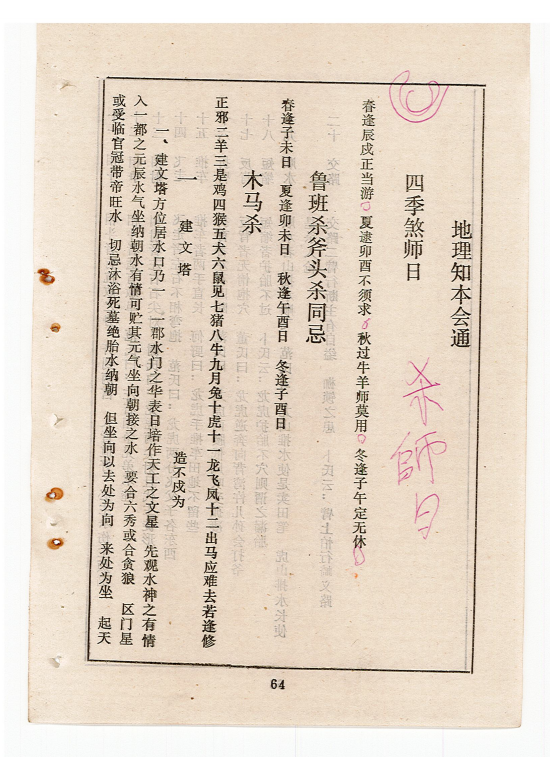 地理知本会通
杀師日
四季煞师日
春逢辰戌正当游 夏逮卯酉不须求 秋过牛羊师莫用 冬逢子午定无休
鲁班杀斧头杀同忌
春逢子未日 夏逢卯未日 秋逢午酉日 冬逢子酉日
木马杀
正邪二羊三是鸡四猴五犬六鼠见七猪八牛九月兔十虎十一龙飞凤十二出马应难去若逢修
造不戍为
一 建文塔
一、建文塔方位居水口乃一 一郡水门之华表日培作天工之文星 先观水神之有情
入一都之元辰水气坐纳朝水有情可贮其元气坐向朝接之水 要合六秀或合贪狼 区门星
或受临官冠带帝旺水 切忌沐浴死墓绝胎水纳朝 但坐向以去处为向 来处为坐 起天
64